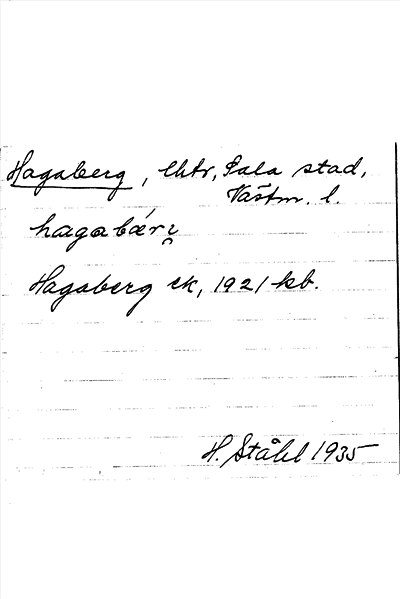 Hagaberg, lht, Sala stad,
Västm. l.
hagabær
Hagaberg ek, 1921 kb.
H. Ståhl 1935